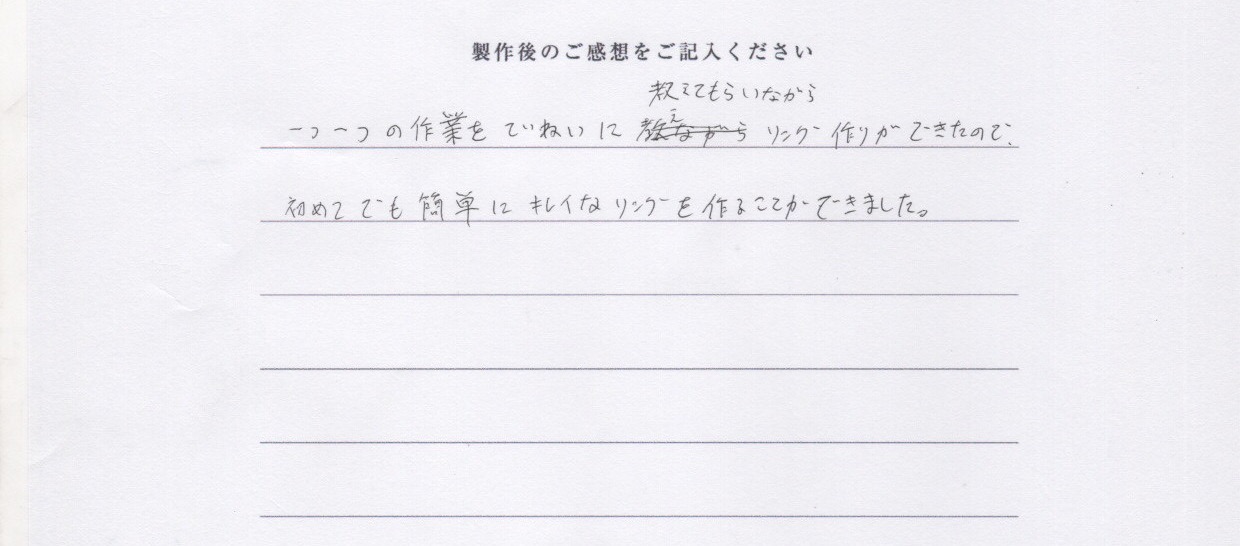 製作後のご感想をご記入ください
教えてもらいながら
一つ一つの作業をていねいに教えながらリング作りができたので、
初めてでも簡単にキレイなリングを作ることができました。